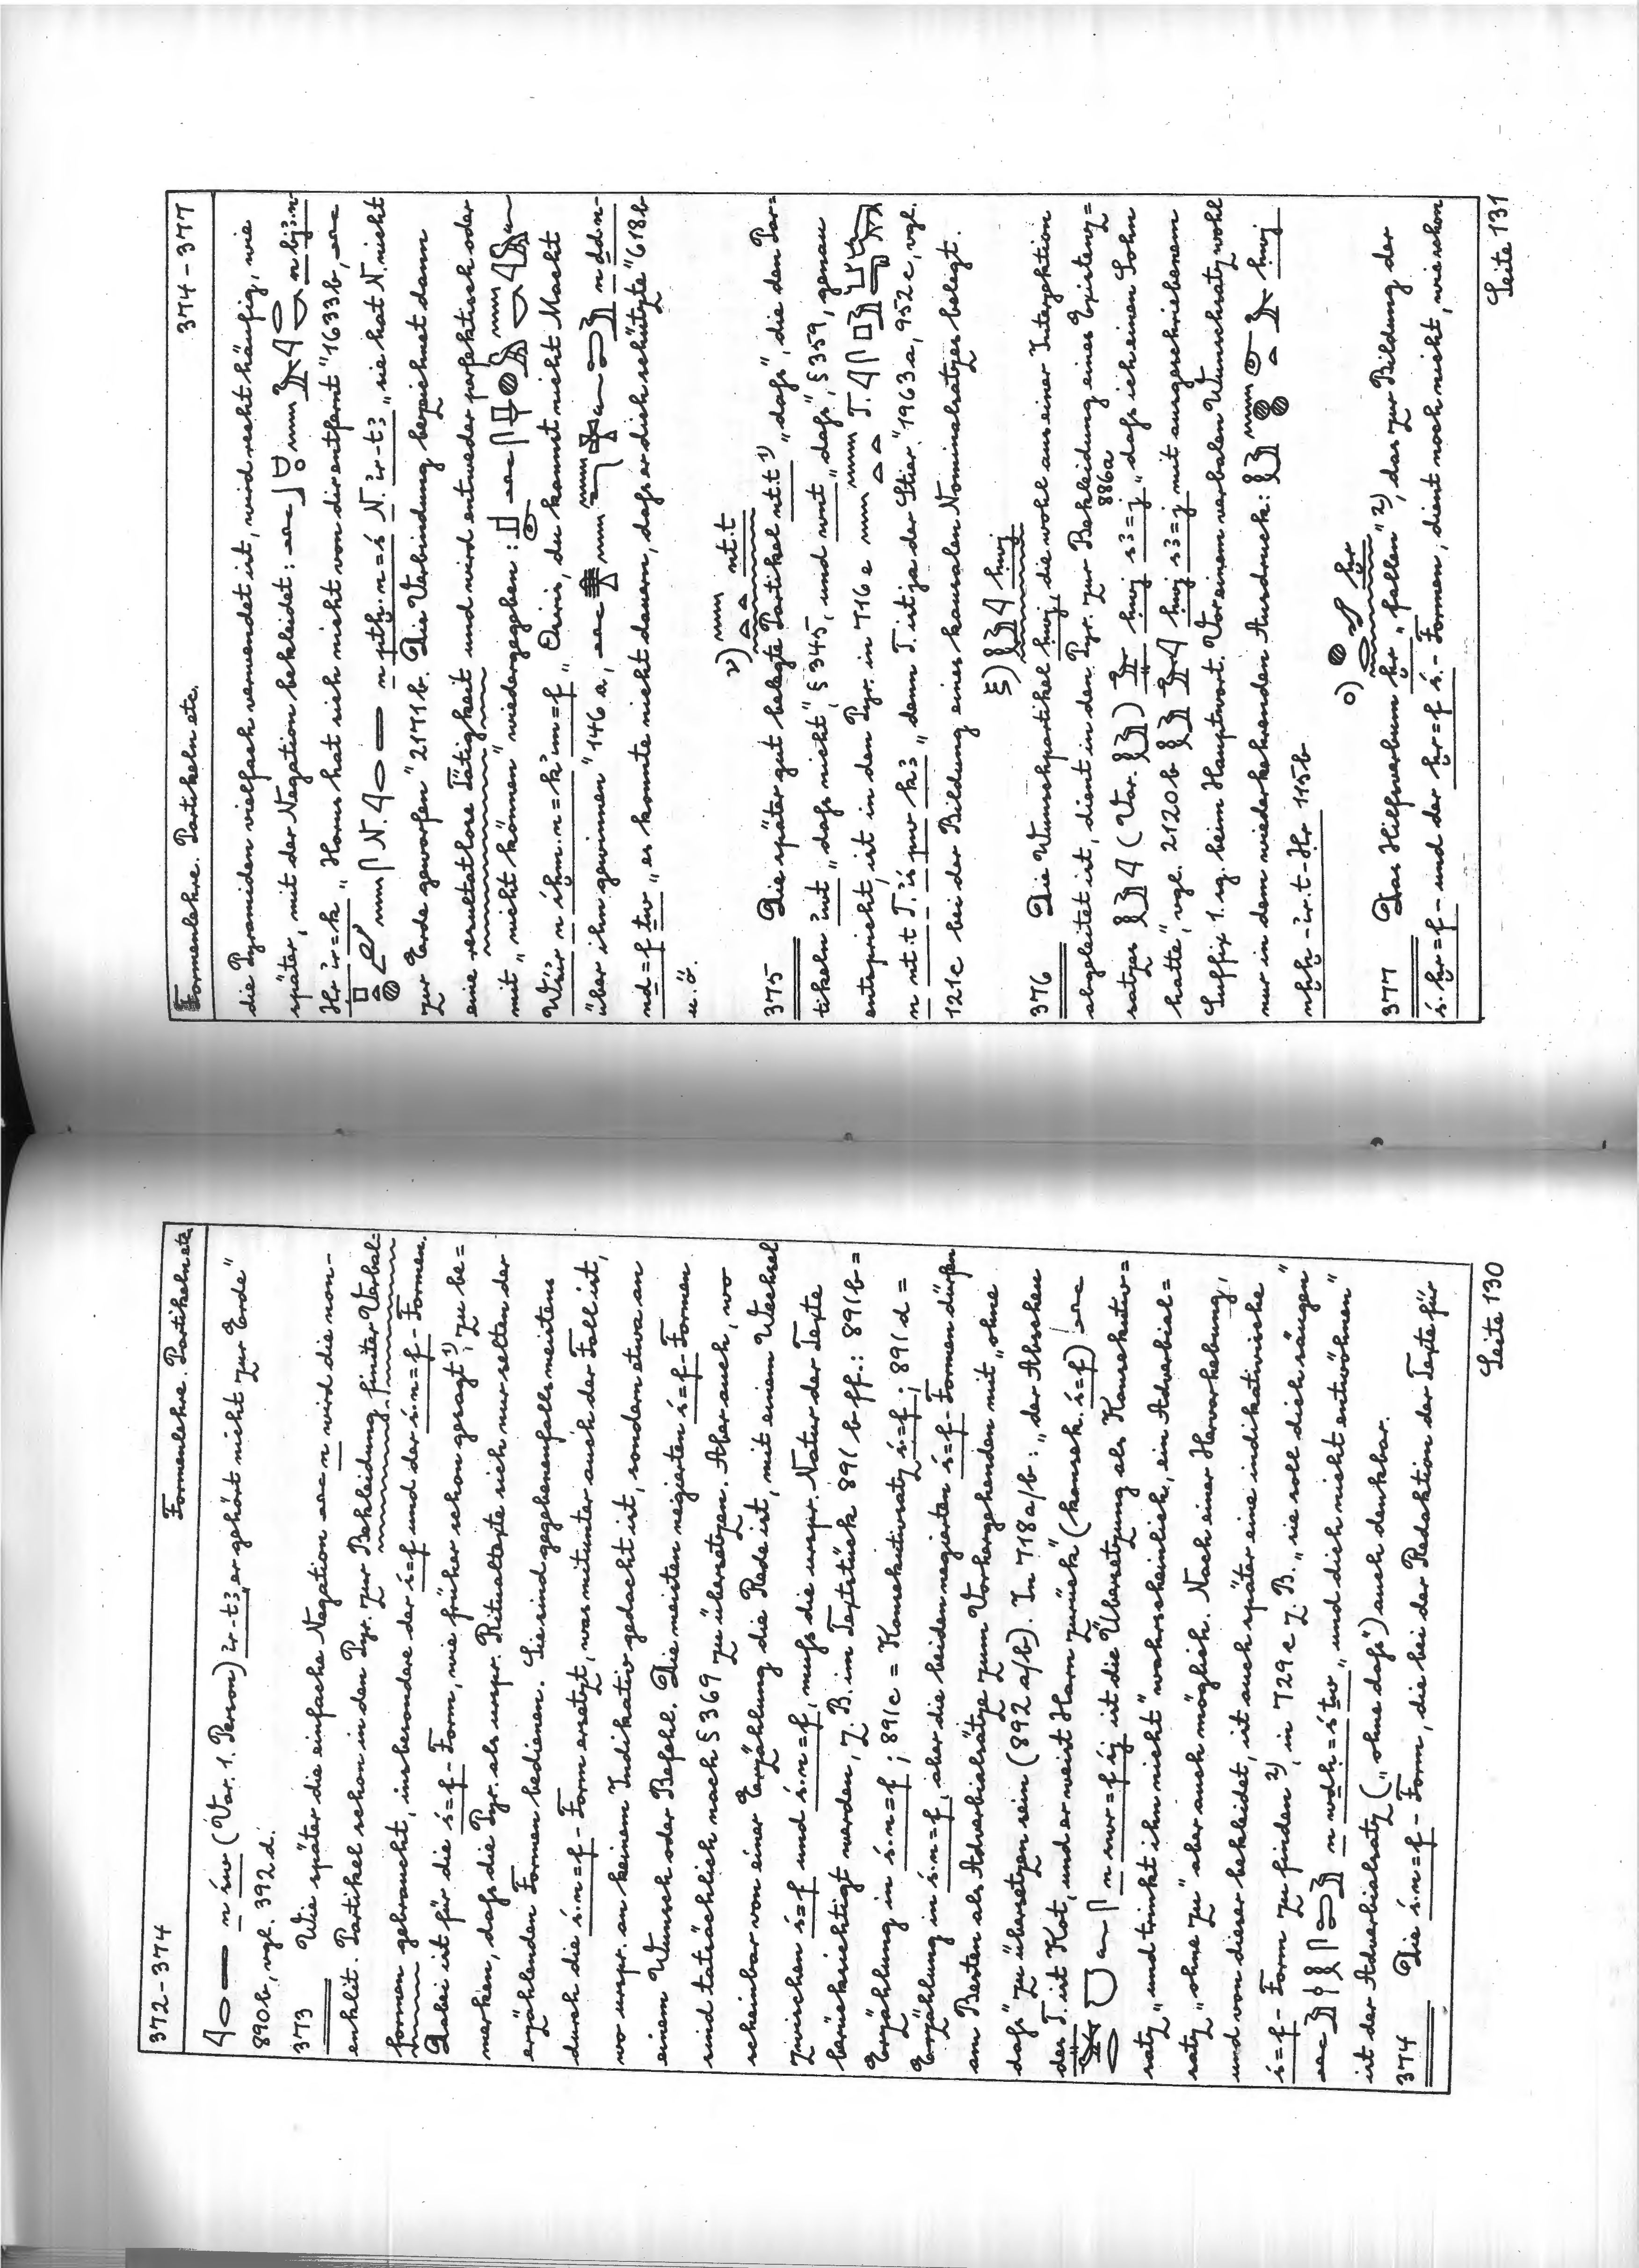 372-374 Formenlehre. Partikeln etc.
𓇋𓂋𓇾 n św (Var. 1. Person) ir-t3 „er gehört nicht zur Erde"
890b, vgl. 392d.
373 Wie später die einfache Negation 𓂜 n wird die non-
enklit. Partikel schon in den Pyr. zur Bekleidung finiter Verbal=
formen gebraucht, insbesondere der ś=f und der ś.n=f-Formen.
Dabei ist für die ś=f-Form, wie früher schon gesagt 1), zu be=
merken, daß die Pyr. als urspr. Ritualtexte sich nur selten der
erzählenden Formen bedienen. Sie sind gegebenenfalls meistens
durch die ś.n=f-Form ersetzt, was mitunter auch der Fall ist,
wo urspr. an keinem Indikativ gedacht ist, sondern etwa an
einem Wunsch oder Befehl. Die meisten negierten ś=f-Formen
sind tatsächlich nach § 369 zu übersetzen. Aber auch, wo
scheinbar von einer Erzählung die Rede ist, mit einem Wechsel
zwischen ś=f und ś.n=f, muß die urspr. Natur der Texte
berücksichtigt werden, z. B. im Textstück 891 b ff.: 891b =
Erzählung in ś.n=f; 891c = Konsekutivsatz ś=f; 891d =
Erzählung in ś.n=f, aber die beiden negierten ś=f-Formen dürfen
am Besten als Adverbialsätze zum Vorhergehenden mit „ohne
daß" zu übersetzen sein (892 a/b). In 718a/b: „der Abscheu
des T. ist Kot, und er weist Harn zurück" (konsek. ś=f) 𓂜
n swr=f śj ist die Übersetzung als Konsekutiv=
satz „und trinkt ihn nicht" wahrscheinlich, ein Adverbial=
satz „ohne zu" aber auch möglich. Nach einer Hervorhebung,
und von dieser bekleidet, ist auch später eine indikativische
ś=f-Form zu finden 2), in 729c z. B. „sie soll dich säugen"
𓂜 n wdḥ=ś ṯw „und dich nicht entwöhnen"
ist der Adverbialsatz („ohne daß") auch denkbar.
374 Die ś.n=f-Form, die bei der Redaktion der Texte für
Seite 130
Formenlehre. Partikeln etc. 374-377
die Pyramiden vielfach verwendet ist, wird recht häufig, wie
später, mit der Negation bekleidet: 𓂜 n bj3.n
Ḥr ir=k „Horus hat sich nicht von dir entfernt" 1633b, 𓂜
N. 𓇋𓂋𓇾 n ptḫ.n=ś N. ir-t3 „sie hat N. nicht
zur Erde geworfen" 2171b. Die Verbindung bezeichnet dann
eine resultatlose Tätigkeit und wird entweder perfektisch oder
mit „nicht können" wiedergegeben:
Wśir n śḫm.n=k im=f „Osiris, du kannst nicht Macht
über ihn gewinnen" 146a, 𓂜 n ḏd.n-
nḏ=f ṯw „es konnte nicht dauern, daß er dich schützte" 618b
u. ö.
ν) nt.t
375 Die später gut belegte Partikel nt.t 1) „daß", die den Par=
tikeln iwt „daß nicht", § 345, und wnt „daß", § 359, genau
entspricht, ist in den Pyr. in 716e T.
n nt.t T. iś pw k3 „denn T. ist ja der Stier" 1963a, 952c, vgl.
121c bei der Bildung eines kausalen Nominalsatzes belegt.
ξ) ḥwj
376 Die Wunschpartikel ḥwj, die wohl aus einer Interjektion
abgeleitet ist, dient in den Pyr. zur Bekleidung eines Existenz=
satzes (Var. ) ḥwj s3=j 886a „daß ich einen Sohn
hatte", vgl. 2120b ḥwj s3=j mit ausgeschriebenem
Suffix 1. sg. beim Hauptwort. Vor einem verbalen Wunschsatz wohl
nur in dem wiederkehrenden Ausdruck: ḥwj
nḫḫ-ir.t-Ḥr 115b
ο) ḫr
377 Das Hilfsverbum ḫr „fallen" 2), das zur Bildung der
ś.ḫr=f- und der ḫr=f ś.-Formen, dient noch nicht, wie schon
Seite 131